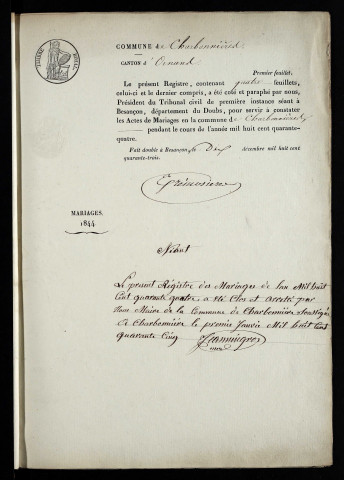 TIMBRE ROYAL
COMMUNE de Charbonnières
CANTON d'Ornans
Premier feuillet.
Le présent Registre, contenant quatre feuillets,
celui-ci et le dernier compris, a été coté et paraphé par nous,
Président du Tribunal civil de première instance séant à
Besançon, département du Doubs, pour servir à constater
les Actes de Mariages en la commune de Charbonnières
pendant le cours de l'année mil huit cent quarante-
quatre.
Fait double à Besançon, le Dix décembre mil huit cent
quarante-trois.
MARIAGES.
1844
Néant
Le present Régistre des Mariages de lan Mil huit
Cent quarante quatre a été Clos et arreté par
Nous Maire de la Commune de Charbonnière Soussigné
a Charbonnière le premier Janvier Mil huit Cent
quarante Cinq Jeanningros